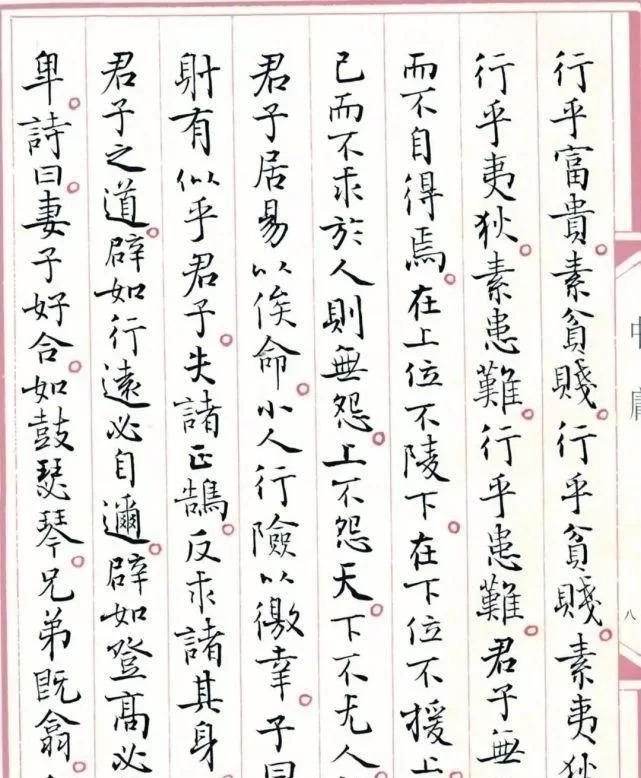 行乎富貴。素貧賤。行乎貧賤。素夷狄
行乎夷狄。素患難。行乎患難。君子無
而不自得焉。在上位不陵下。在下位不援上
己而不求於人則無怨。上不怨天。下不尤人
君子居易以俟命。小人行險以徼幸。子曰
射有似乎君子。失諸正鵠。反求諸其身
君子之道。辟如行遠必自邇。辟如登高必
卑。詩曰。妻子好合。如鼓瑟琴。兄弟既翕。
中庸
八